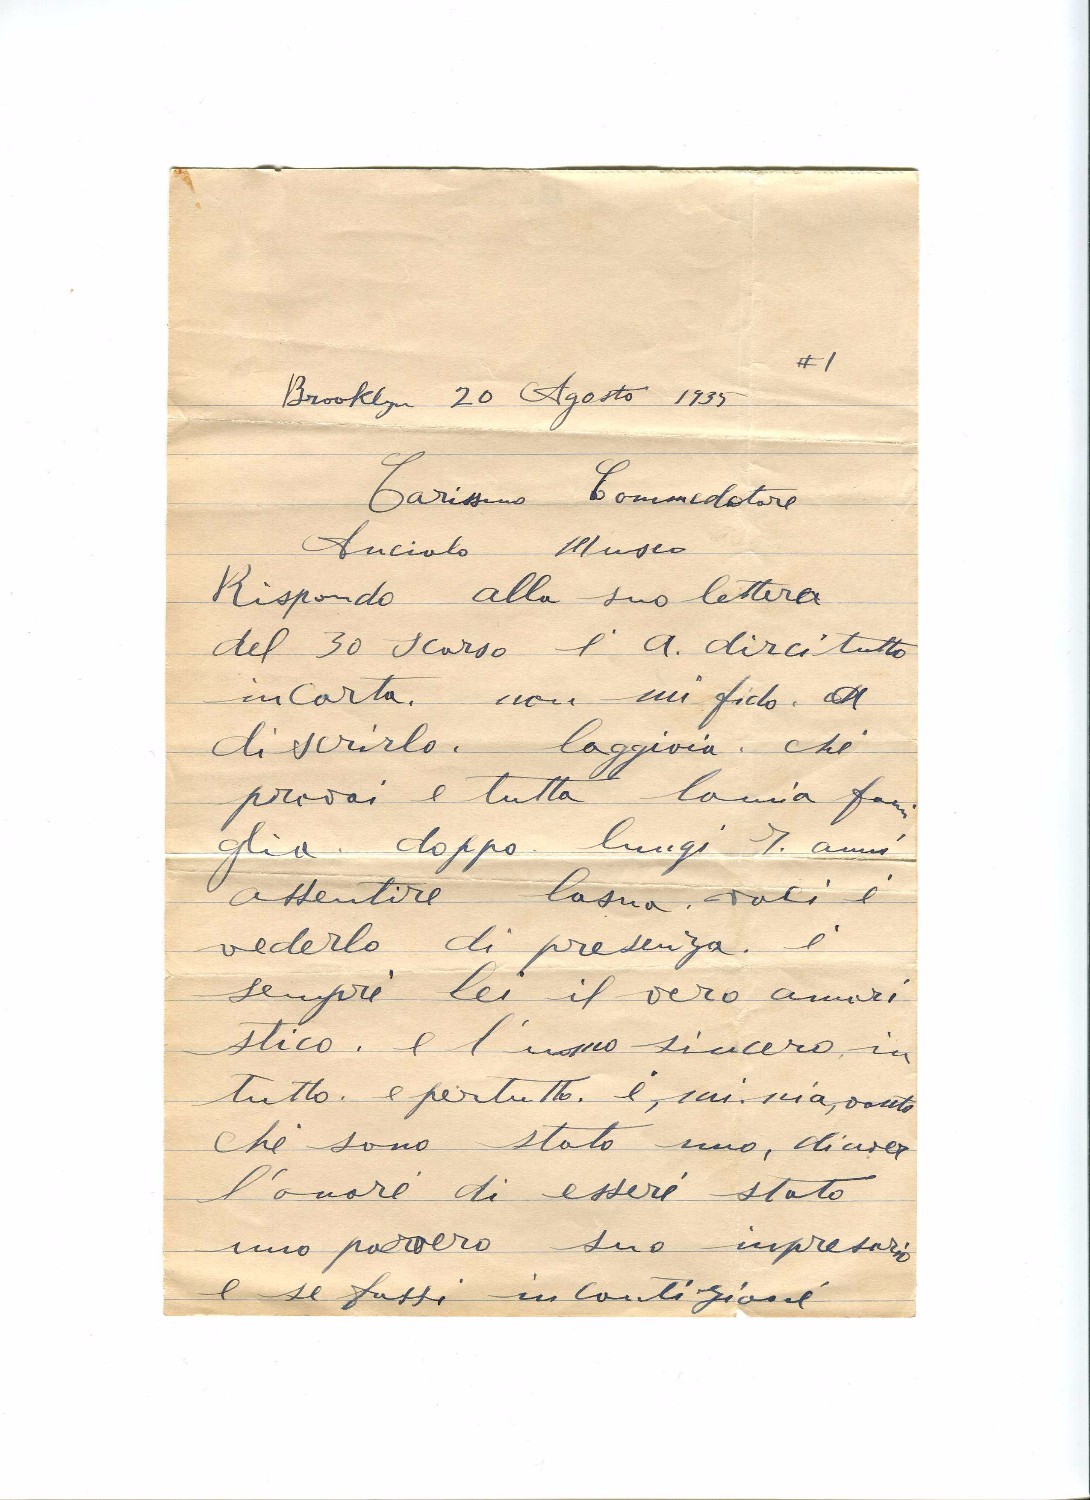 #1
Brooklyn 20 Agosto 1935
Carissimo Commedatore
Anciolo Museo
Rispondo alla suo lettera
del 30 scorso e' A. dirci tutto
incarta. non mi fido. A
discrirlo. laggioia. che'
provai e tutta lamia fami
glia. doppo. lungi 7. anni
assentire lasua. voci e'
vederlo di presenza. e'
sempre' lei il vero amori
stico. e l'uomo sincero. in
tutto. e pertutto. e', mi. nia, vanto
che' sono stato uno, diaver
l'onore' di essere' stato
uno povero suo inpresario
e se fossi in contizione'